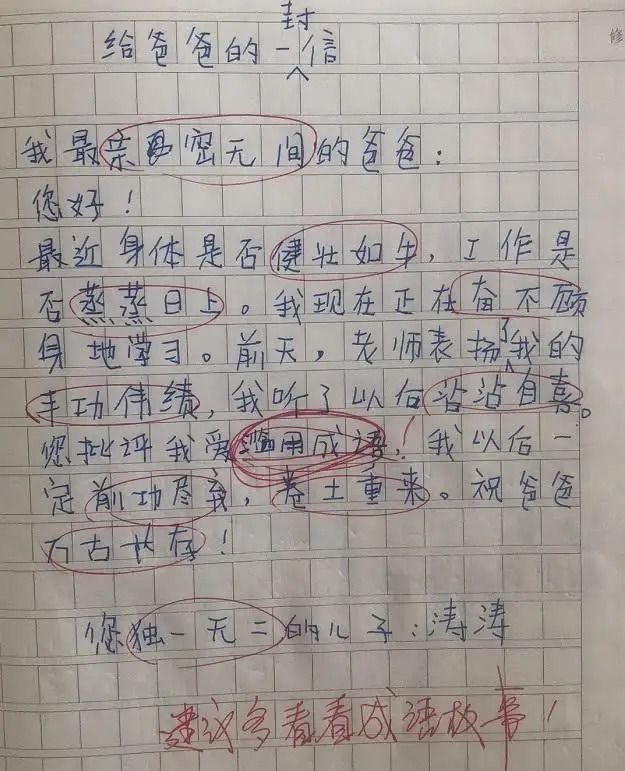 给爸爸的一封信
我最亲密无间的爸爸：
您好！
最近身体是否健壮如牛，工作是
否蒸蒸日上。我现在正在奋不顾
身地学习。前天，老师表扬了我的
丰功伟绩，我听了以后沾沾自喜。
您批评我爱滥用成语，我以后一
定前功尽弃，卷土重来。祝爸爸
万古长存！
您独一无二的儿子：涛涛
建议多看看成语故事！
修